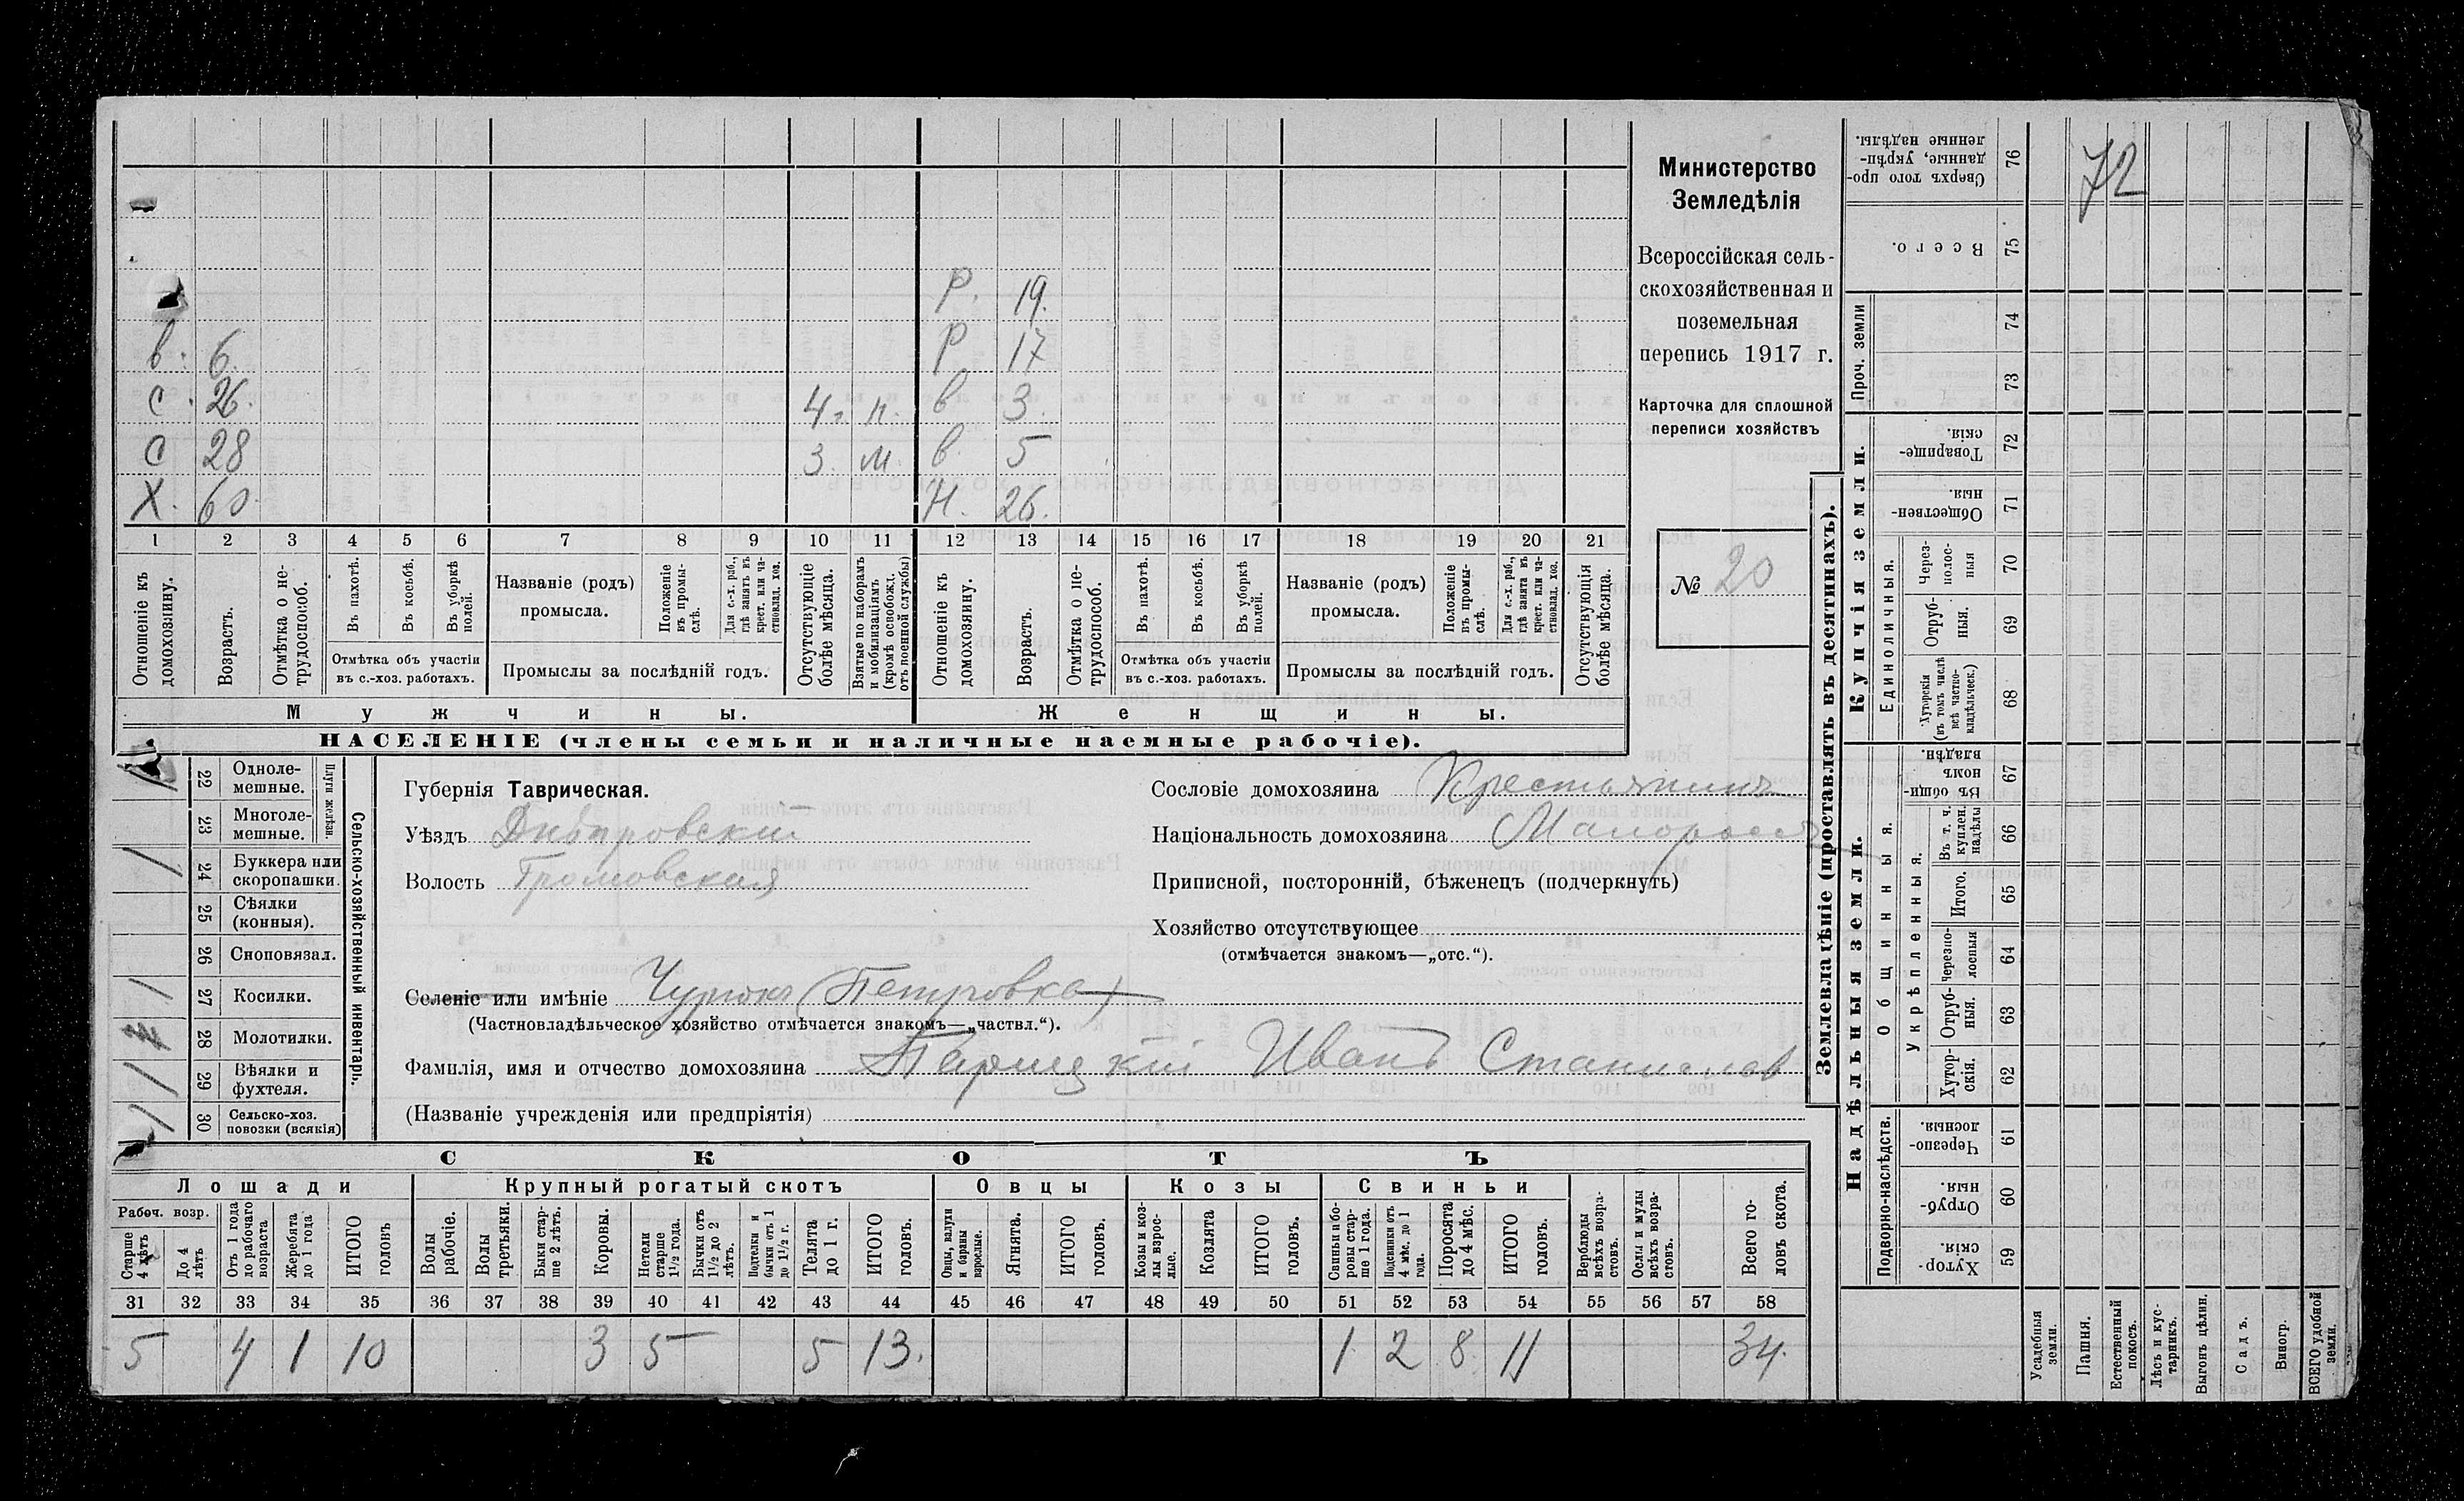 Министерство
Земледѣлія
Всероссійская сель-
скохозяйственная и
поземельная
перепись 1917 г.
Карточка для сплошной
переписи хозяйствъ
№ 20
Р. 19.
в. 6. Р 17
с. 26. 4 г. н. в 3.
с 28 3. м. в. 5
Х. 60. Н. 26.
1 2 3 4 5 6 7 8 9 10 11 12 13 14 15 16 17 18 19 20 21
Отношеніе къ домохозяину.
Возрастъ.
Отмѣтка о не-трудоспособ.
Въ пахотѣ.
Въ косьбѣ.
Въ уборкѣ полей.
Отмѣтка объ участіи
въ с.-хоз. работахъ.
Названіе (родъ)
промысла.
Положеніе въ промы-слѣ.
Для с.-х. раб., гдѣ занятъ въ крест. или ча-стновлад. хоз.
Промыслы за послѣдній годъ.
Отсутствующіе болѣе мѣсяца.
Взятые по наборамъ и мобилизаціямъ (кромѣ освобожд. отъ военной службы)
Отношеніе къ домохозяину.
Возрастъ.
Отмѣтка о не-трудоспособ.
Въ пахотѣ.
Въ косьбѣ.
Въ уборкѣ полей.
Отмѣтка объ участіи
въ с.-хоз. работахъ.
Названіе (родъ)
промысла.
Положеніе въ промы-слѣ.
Для с.-х. раб., гдѣ занята въ крест. или ча-стновлад. хоз.
Промыслы за послѣдній годъ.
Отсутствующія болѣе мѣсяца.
Мужчины. Женщины.
НАСЕЛЕНІЕ (члены семьи и наличные наемные рабочіе).
Сельско-хозяйственный инвентарь.
Плуги желѣзн.
22 Одноле-
мешные.
23 Многоле-
мешные.
24 Буккера или
скоропашки.
25 Сѣялки
(конныя).
26 Сноповязал.
27 Косилки.
28 Молотилки.
29 Вѣялки и
фухтеля.
30 Сельско-хоз.
повозки (всякія)
Губернія Таврическая.
Уѣздъ Днѣпровскій
Волость Громовская
Сословіе домохозяина Крестьянинъ
Національность домохозяина Малороссъ
Приписной, посторонній, бѣженецъ (подчеркнуть)
Хозяйство отсутствующее
(отмѣчается знакомъ—„отс.“).
Селеніе или имѣніе (Петровка)
(Частновладѣльческое хозяйство отмѣчается знакомъ—„частвл.“).
Фамилія, имя и отчество домохозяина Иванъ Станислав
(Названіе учрежденія или предпріятія)
СКОТЪ
Лошади Крупный рогатый скотъ Овцы Козы Свиньи
Рабоч. возр.
Старше 4 лѣтъ
До 4 лѣтъ
Отъ 1 года до рабочаго возраста
Жеребята до 1 года
ИТОГО головъ
Волы рабочіе.
Волы третьяки.
Быки стар-ше 2 лѣтъ.
Коровы.
Нетели старше 1½ года.
Бычки отъ 1½ до 2 лѣтъ.
Подтелки и бычки отъ 1 до 1½ г.
Телята до 1 г.
ИТОГО головъ.
Овцы, валухи и бараны взрослые.
Ягнята.
ИТОГО головъ.
Козы и коз-лы взрос-лые.
Козлята
ИТОГО головъ.
Свиньи и бо-ровы стар-ше 1 года.
Подсвинки отъ 4 мѣс. до 1 года.
Поросята до 4 мѣс.
ИТОГО головъ.
Верблюды всѣхъ возра-стовъ.
Ослы и мулы всѣхъ возра-стовъ.
Всего го-ловъ скота.
31 32 33 34 35 36 37 38 39 40 41 42 43 44 45 46 47 48 49 50 51 52 53 54 55 56 57 58
5 4 1 10 3 5 5 13. 1 2 8 11 34.
Землевладѣніе (проставлять въ десятинахъ).
Купчія земли.
Надѣльныя земли.
Сверхъ того про-данные, укрѣп-ленные надѣлы. 76
Всего. 75
Проч. земли 74 73
Товарище-скія. 72
Обществен-ныя. 71
Единоличныя.
Через-полос-ныя 70
Отруб-ныя. 69
Хуторскія (въ томъ числѣ всѣ частно-владѣльческ.) 68
Общинныя.
Въ общи-номъ владѣн. 67
Укрѣпленныя.
Въ т. ч. куплен. надѣлы 66
Итого. 65
Черезпо-лосныя 64
Отруб-ныя. 63
Хутор-скія. 62
Подворно-наслѣдств.
Черезпо-лосныя. 61
Отруб-ныя. 60
Хутор-скія. 59
72
Усадебныя земли.
Пашня.
Естественный покосъ.
Лѣсъ и кус-тарникъ.
Выгонъ цѣлин.
Садъ.
Виногр.
ВСЕГО удобной земли.